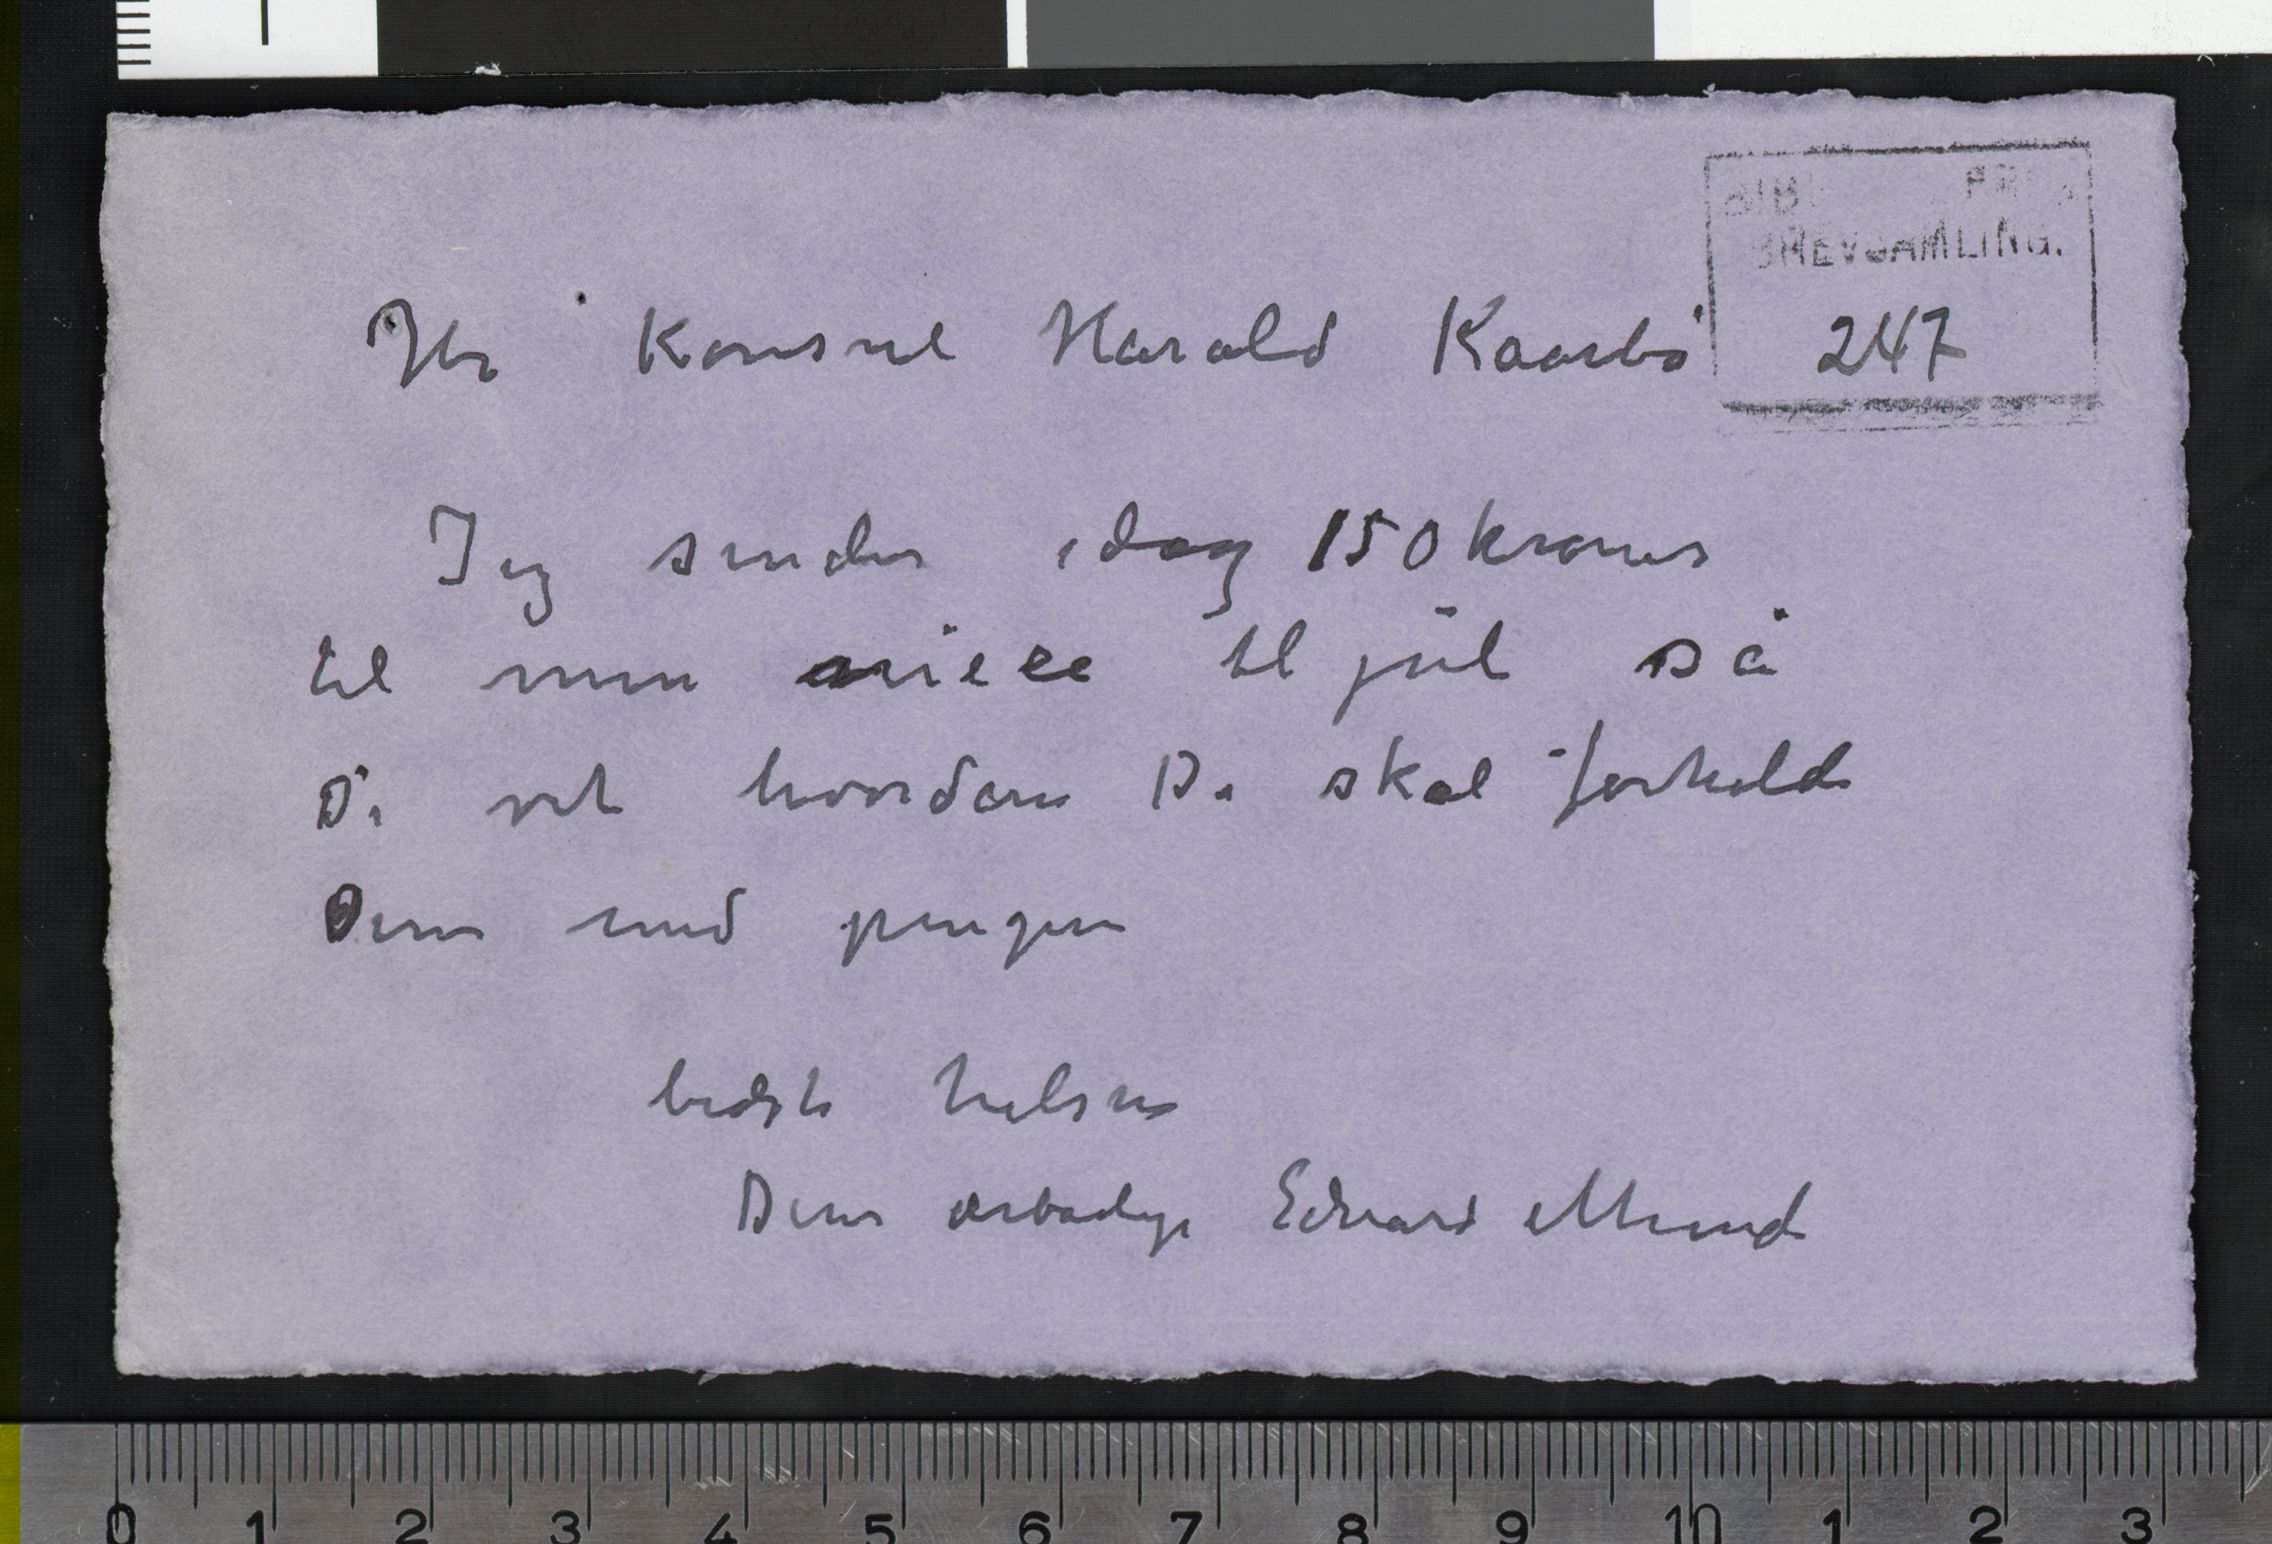 BREVSAMLING.
247
Hr Konsul Harald Kaarbø
Jeg sender idag 150 kroner
til min niece til jul så
De vet hvordan De skal forholde
Dem med pengene
bedste hilsen
Deres ærbødige Edvard Munch
0 1 2 3 4 5 6 7 8 9 10 1 2 3